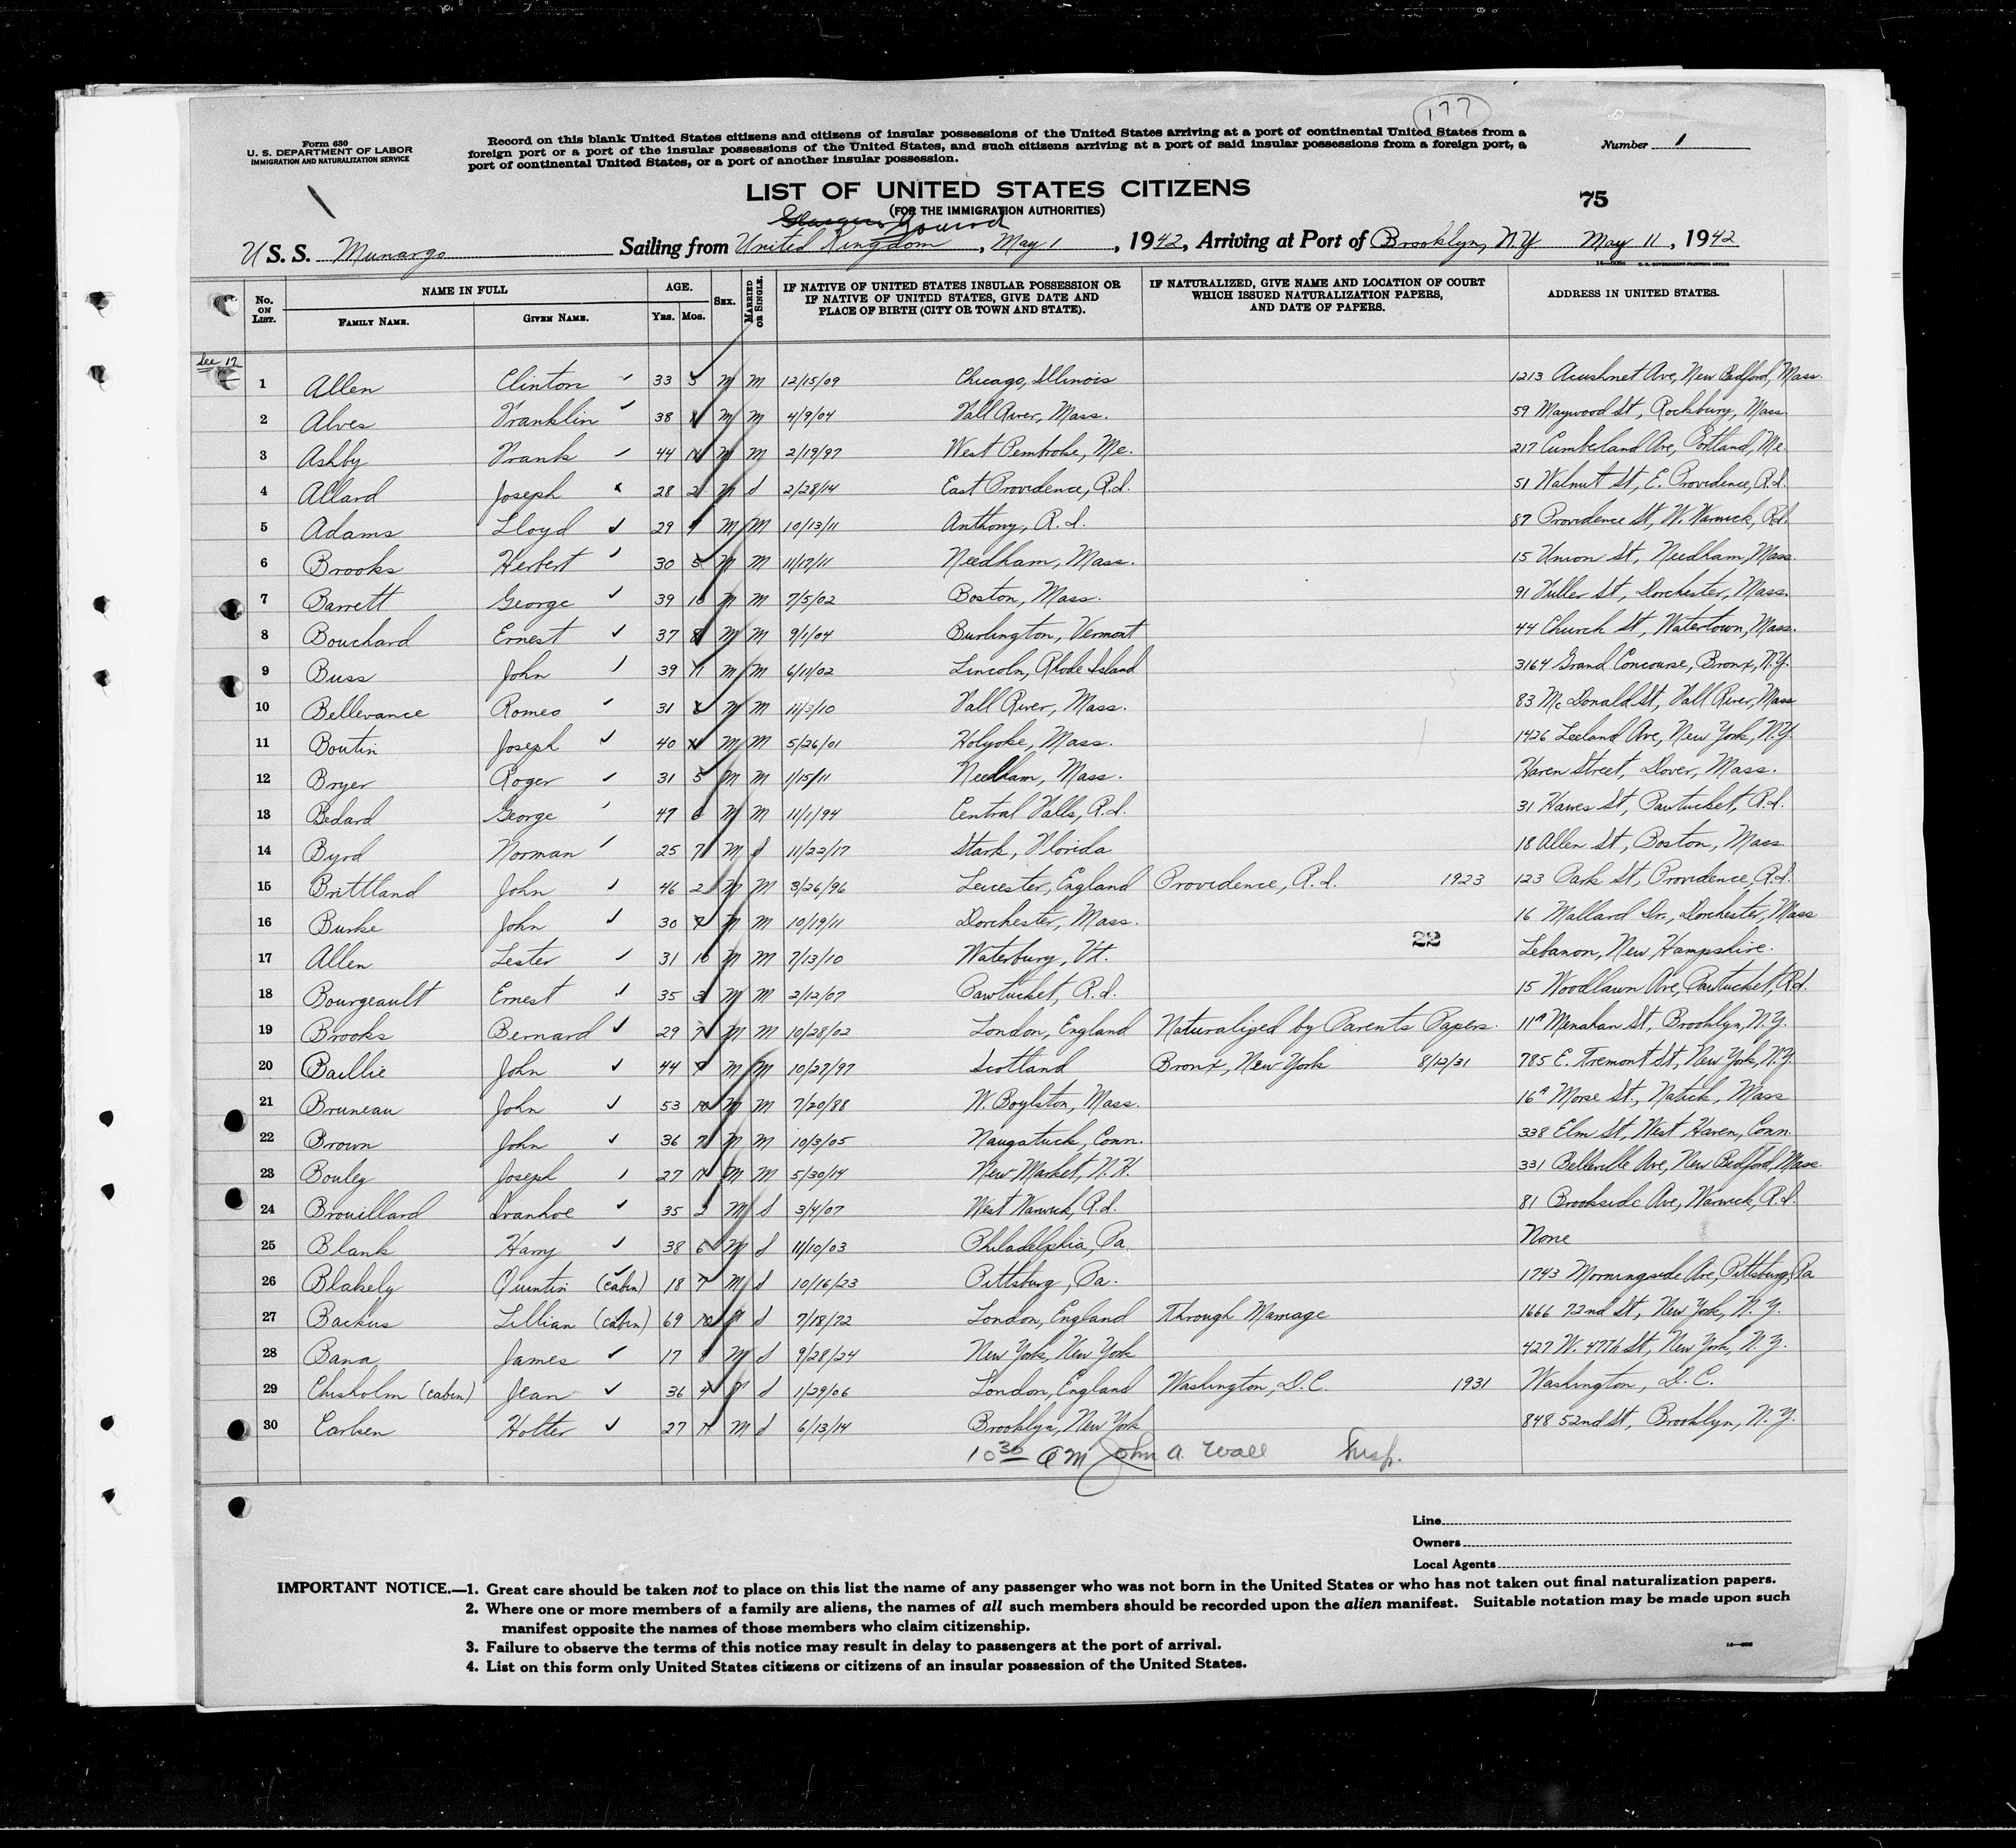 177
Form 630
U. S. DEPARTMENT OF LABOR
IMMIGRATION AND NATURALIZATION SERVICE
Record on this blank United States citizens and citizens of insular possessions of the United States arriving at a port of continental United States from a
foreign port or a port of the insular possessions of the United States, and such citizens arriving at a port of said insular possessions from a foreign port, a
port of continental United States, or a port of another insular possession.
Number 1
LIST OF UNITED STATES CITIZENS
(FOR THE IMMIGRATION AUTHORITIES)
75
Glasgow Gourock
U S. S. Munargo Sailing from United Kingdom, May 1, 1942, Arriving at Port of Brooklyn, N.Y May 11, 1942
No. ON LIST. NAME IN FULL FAMILY NAME. GIVEN NAME. AGE. YRS. MOS. SEX. MARRIED OR SINGLE. IF NATIVE OF UNITED STATES INSULAR POSSESSION OR IF NATIVE OF UNITED STATES, GIVE DATE AND PLACE OF BIRTH (CITY OR TOWN AND STATE). IF NATURALIZED, GIVE NAME AND LOCATION OF COURT WHICH ISSUED NATURALIZATION PAPERS, AND DATE OF PAPERS. ADDRESS IN UNITED STATES.
See 17
1 Allen Clinton 33 5 M M 12/15/09 Chicago, Illinois 1213 Acushnet Ave, New Bedford, Mass.
2 Alves Franklin 38 1 M M 4/9/04 Fall River, Mass. 59 Maywood St, Rockbury, Mass
3 Ashby Frank 44 M M 2/19/97 West Pembroke, Me. 217 Cumberland Ave, Portland, Me.
4 Allard Joseph 28 2 M S 2/28/14 East Providence, R.I. 51 Walnut St, E. Providence, R.I.
5 Adams Lloyd 29 M M 10/13/11 Anthony, R.I. 87 Providence St, W. Warwick, R.I.
6 Brooks Herbert 30 5 M M 11/17/11 Needham, Mass. 15 Union St, Needham, Mass.
7 Barrett George 39 10 M M 7/5/02 Boston, Mass. 91 Fuller St, Dorchester, Mass.
8 Bouchard Ernest 37 8 M M 9/1/04 Burlington, Vermont 44 Church St, Watertown, Mass.
9 Buss John 39 11 M M 6/11/02 Lincoln, Rhode Island 3164 Grand Concourse, Bronx, N.Y.
10 Bellevance Romeo 31 M M 11/3/10 Fall River, Mass. 83 McDonald St, Fall River, Mass
11 Boutin Joseph 40 M M 5/26/01 Holyoke, Mass. 1426 Leeland Ave, New York, N.Y.
12 Bryer Roger 31 5 M M 1/15/11 Needham, Mass. Haven Street, Dover, Mass.
13 Bedard George 47 6 M M 11/1/94 Central Falls, R.I. 31 Hawes St, Pawtucket, R.I.
14 Byrd Norman 25 7 M S 11/22/17 Stark, Florida 18 Allen St, Boston, Mass.
15 Brittland John 46 2 M M 3/26/96 Leicester, England Providence, R.I. 1923 123 Park St, Providence, R.I.
16 Burke John 30 7 M M 10/19/11 Dorchester, Mass. 16 Mallard Dr., Dorchester, Mass
22
17 Allen Lester 31 10 M M 7/13/10 Waterbury, Vt. Lebanon, New Hampshire.
18 Bourgeault Ernest 35 3 M M 2/12/07 Pawtucket, R.I. 15 Woodlawn Ave, Pawtucket, R.I.
19 Brooks Bernard 29 7 M M 10/28/02 London, England Naturalized by Parents Papers. 11A Menahan St, Brooklyn, N.Y.
20 Baillie John 44 7 M M 10/27/97 Scotland Bronx, New York 8/12/31 785 E. Tremont St, New York, N.Y.
21 Bruneau John 53 10 M M 7/20/88 W. Boylston, Mass. 16A Morse St., Natick, Mass
22 Brown John 36 7 M M 10/3/05 Naugatuck, Conn. 338 Elm St, West Haven, Conn.
23 Bouley Joseph 27 11 M M 5/30/14 New Market, N.H. 331 Belleville Ave, New Bedford, Mass.
24 Brouillard Ivanhoe 35 2 M S 3/4/07 West Warwick, R.I. 81 Brookside Ave, Warwick, R.I.
25 Blank Harry 38 6 M S 11/10/03 Philadelphia, Pa. None
26 Blakely Quintin (cabin) 18 7 M S 10/16/23 Pittsburg, Pa. 1743 Morningside Ave, Pittsburg, Pa
27 Backus Lillian (cabin) 69 10 F S 7/18/72 London, England Through Marriage 1666 72nd St, New York, N.Y.
28 Bana James 17 8 M S 9/28/24 New York, New York 427 W. 47th St, New York, N.Y.
29 Chisholm (cabin) Jean 36 4 F S 1/29/06 London, England Washington, D.C. 1931 Washington, D.C.
30 Carlsen Holter 27 11 M S 6/13/14 Brooklyn, New York 848 52nd St, Brooklyn, N.Y.
10 30 AM John A. Wall Insp.
Line
Owners
Local Agents
IMPORTANT NOTICE.—1. Great care should be taken not to place on this list the name of any passenger who was not born in the United States or who has not taken out final naturalization papers.
2. Where one or more members of a family are aliens, the names of all such members should be recorded upon the alien manifest. Suitable notation may be made upon such
manifest opposite the names of those members who claim citizenship.
3. Failure to observe the terms of this notice may result in delay to passengers at the port of arrival.
4. List on this form only United States citizens or citizens of an insular possession of the United States.